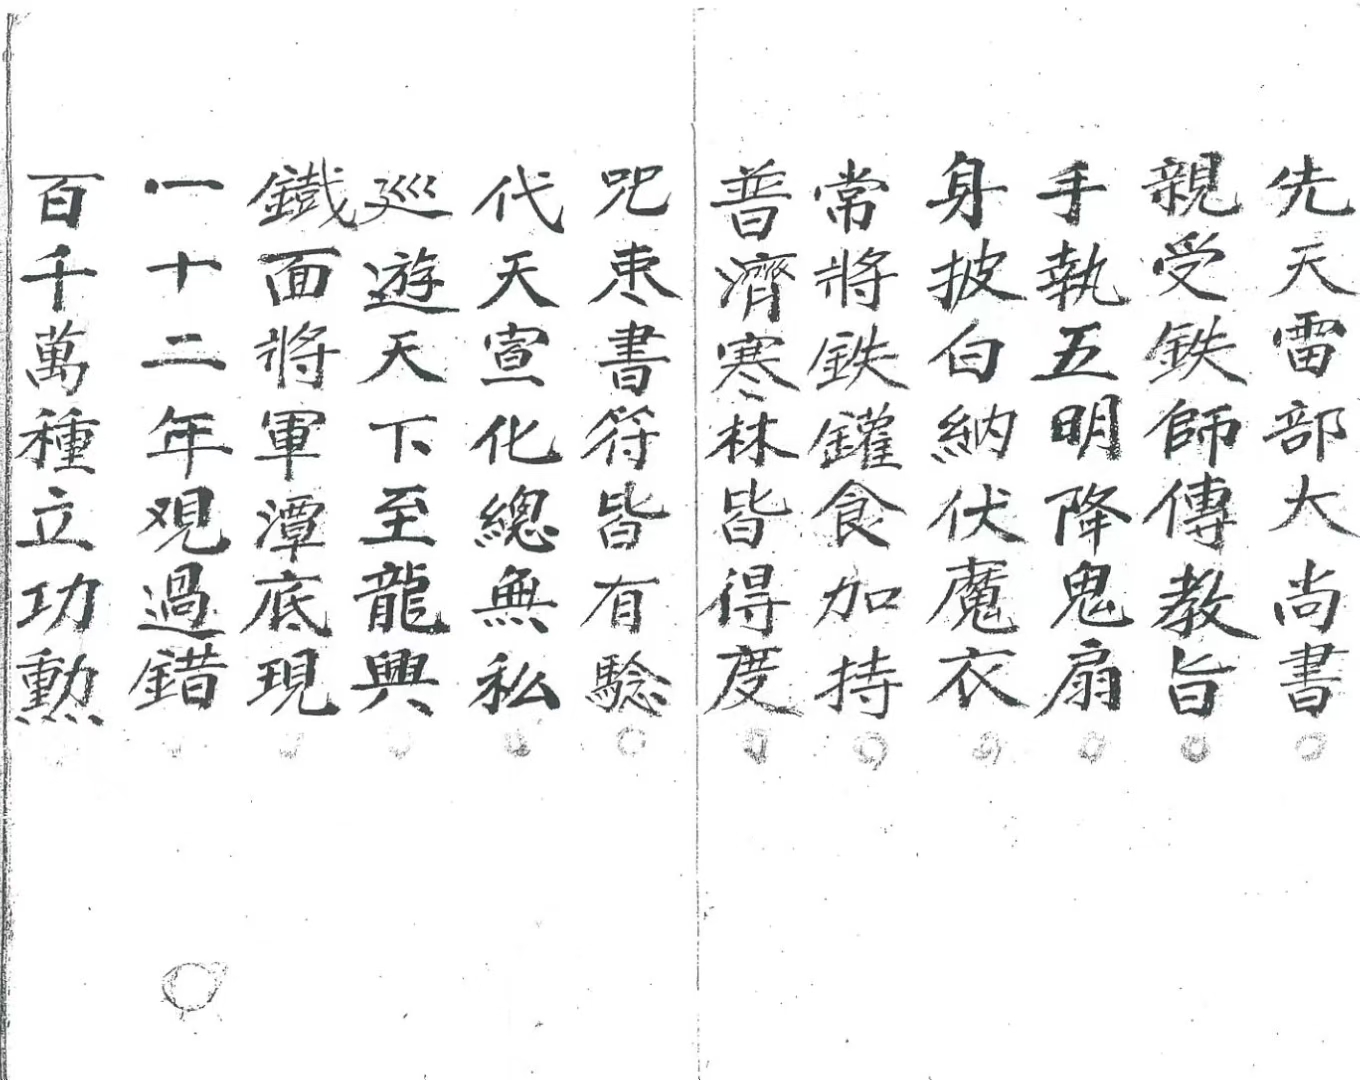 先天雷部大尚書
親受鉄師傳教旨
手執五明降鬼扇
身披白納伏魔衣
常將鉄鑵食加持
普濟寒林皆得度
咒枣書符皆有驗
代天宣化總無私
廵遊天下至龍興
鐵面將軍潭底現
一十二年观過錯
百千萬種立功勲